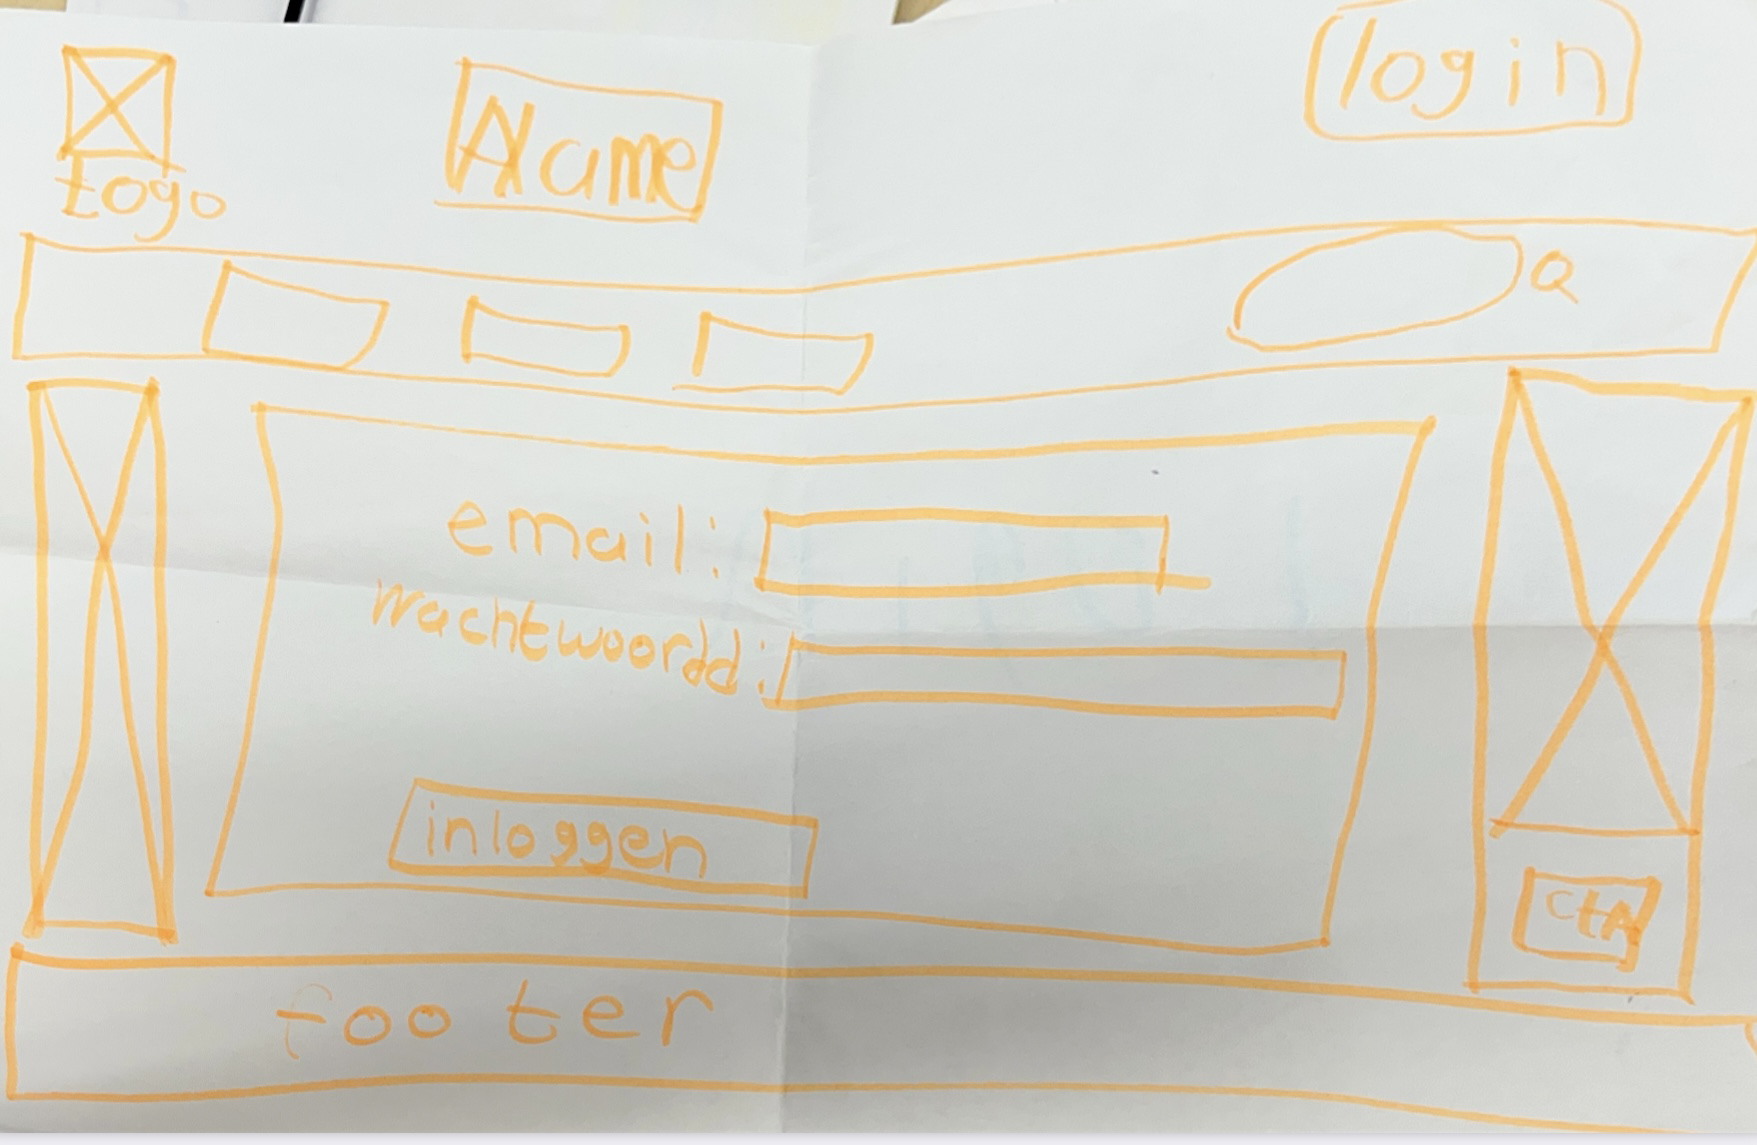 Logo
Name
login
email:
wachtwoordd:
inloggen
CtA
footer